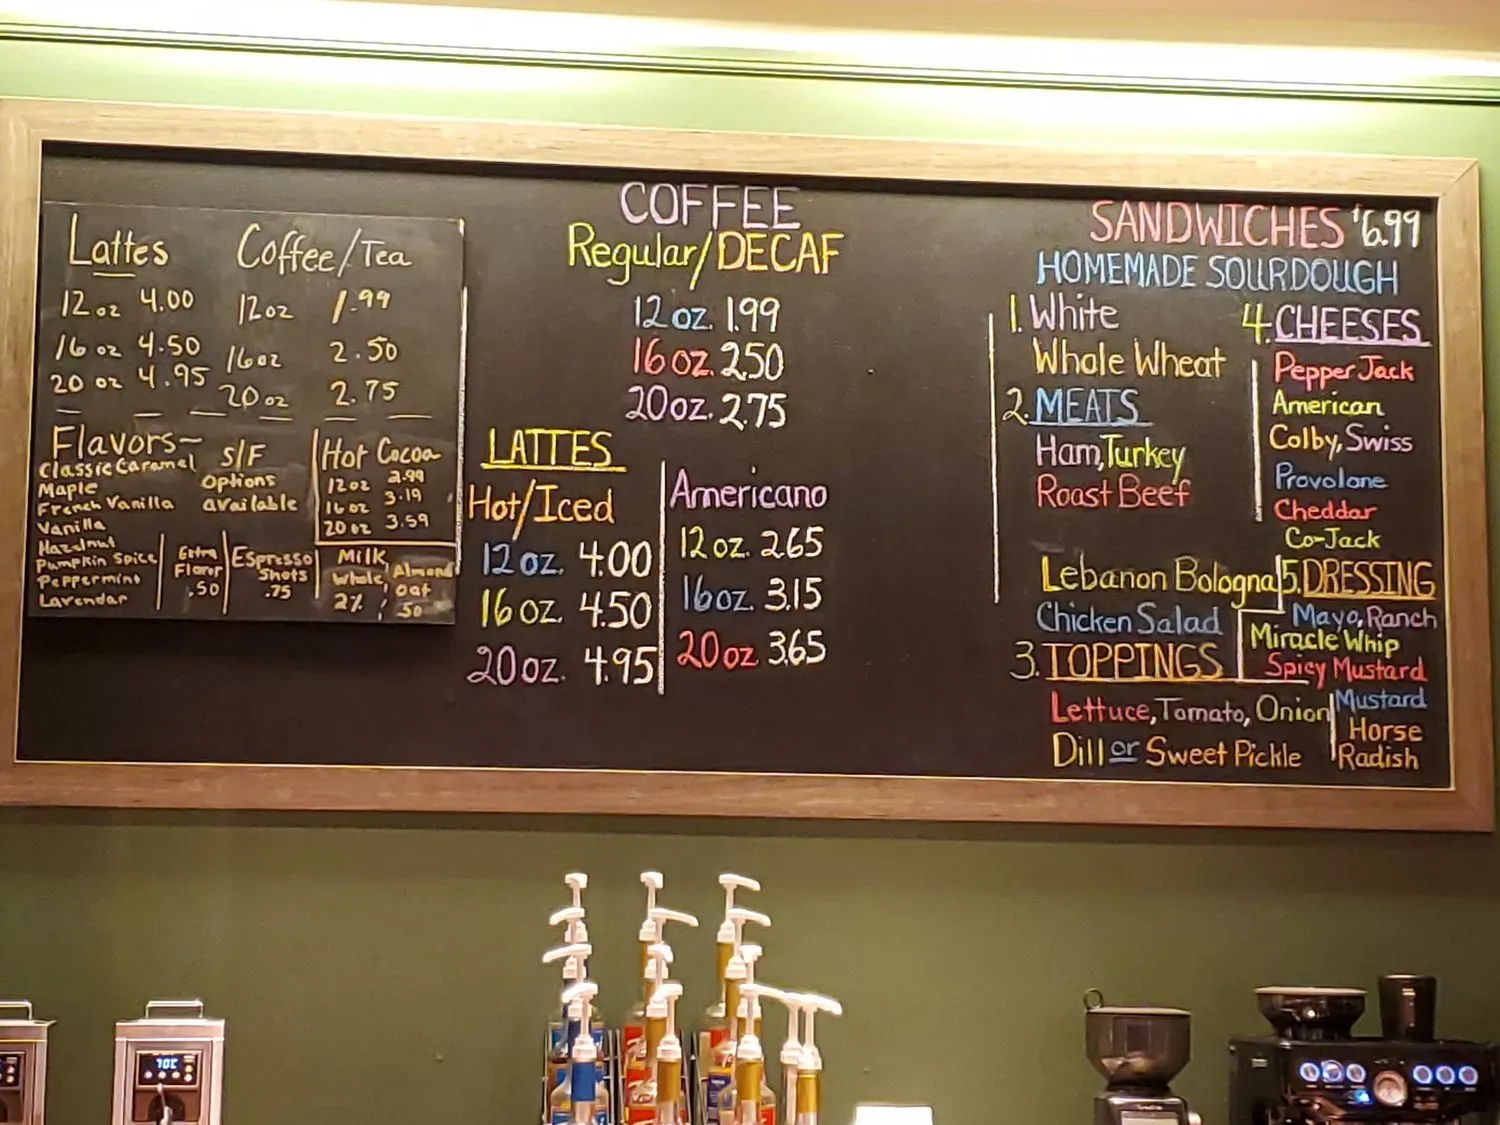 Lattes
12 oz 4.00
16 oz 4.50
20 oz 4.95
Coffee/Tea
12oz 1.99
16oz 2.50
20oz 2.75
Flavors~
Classic Caramel
Maple
French Vanilla
Vanilla
Hazelnut
Pumpkin Spice
Peppermint
Lavendar
S/F
Options
available
Hot Cocoa
12oz 2.99
16oz 3.19
20oz 3.59
Extra
Flavor
.50
Espresso
Shots
.75
Milk
Whole, Almond
2%, oat
.50
COFFEE
Regular/DECAF
12 oz. 1.99
16 oz. 2.50
20 oz. 2.75
LATTES
Hot/Iced
12 oz. 4.00
16 oz. 4.50
20 oz. 4.95
Americano
12 oz. 2.65
16 oz. 3.15
20 oz 3.65
SANDWICHES $6.99
HOMEMADE SOURDOUGH
1. White
Whole Wheat
2. MEATS
Ham, Turkey
Roast Beef
Lebanon Bologna
Chicken Salad
3. TOPPINGS
Lettuce, Tomato, Onion
Dill or Sweet Pickle
4. CHEESES
Pepper Jack
American
Colby, Swiss
Provolone
Cheddar
Co-Jack
5. DRESSING
Mayo, Ranch
Miracle Whip
Spicy Mustard
Mustard
Horse
Radish